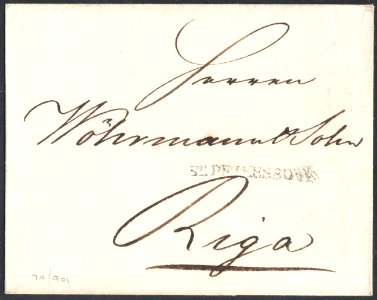 Herren
Wöhrmann & Sohn
ST.PETERSBOURG
Riga